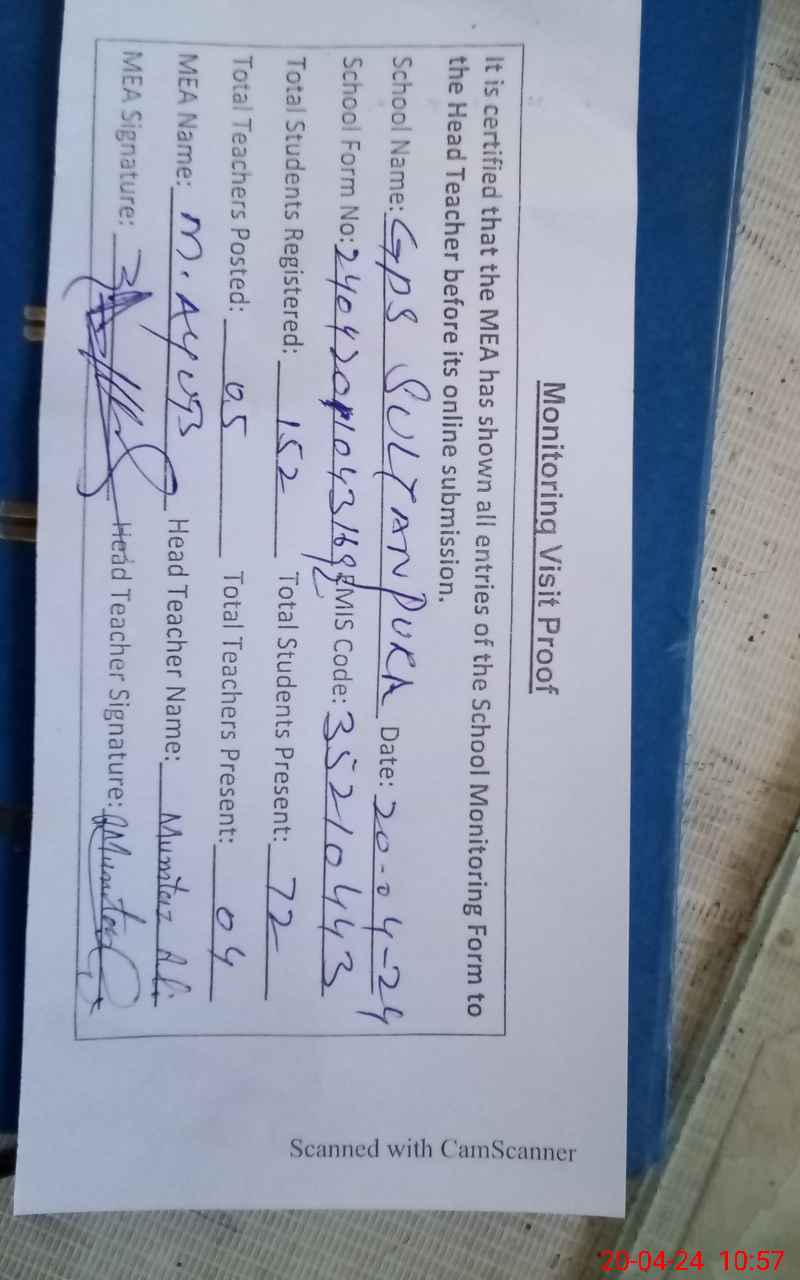 Monitoring Visit Proof
It is certified that the MEA has shown all entries of the School Monitoring Form to
the Head Teacher before its online submission.
School Name: GPS SULTANPURA Date: 20-04-24
School Form No: EMIS Code: 35210443
Total Students Registered: 152 Total Students Present: 72
Total Teachers Posted: 05 Total Teachers Present: 04
MEA Name: M. AYUB Head Teacher Name: Mumtaz Ali
MEA Signature: Head Teacher Signature: Mumtaz
Scanned with CamScanner
20-04-24 10:57